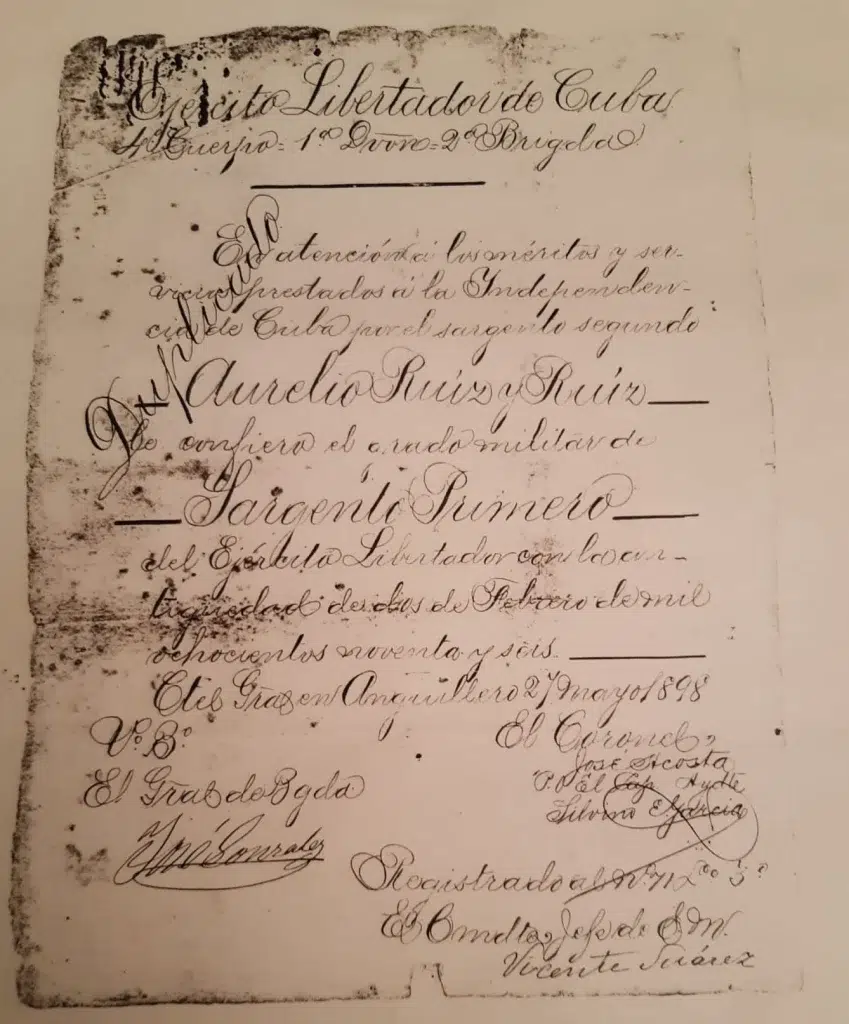 Ejército Libertador de Cuba
4º Cuerpo = 1ª Dvon = 2ª Brigda
Duplicado
En atención á los méritos y ser-
vicios prestados á la Independen-
cia de Cuba por el sargento segundo
Aurelio Ruíz y Ruíz
le confiero el grado militar de
Sargento Primero
del Ejército Libertador con la an-
tiguedad de dos de Febrero de mil
ochocientos noventa y seis.
Ctel Gral en Anguillero 27 Mayo 1898
Vº Bº
El Coronel,
José Acosta
P.O El Cap Aydte
Silvino E. García
El Gral de Bgda
José Gonzalez
Registrado al Nº 71 Lº 3º
El Cmdte Jefe de E. M.
Vicente Suárez